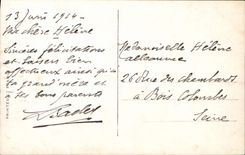 13 Juin 1914 -
Ma chère Hélène
Sincères félicitations
et baisers bien
affectueux ainsi qu'à
ta grand'mère et
tes bons parents
Mademoiselle Hélène
26 Rue des Chambards
à Bois Colombes
Seine